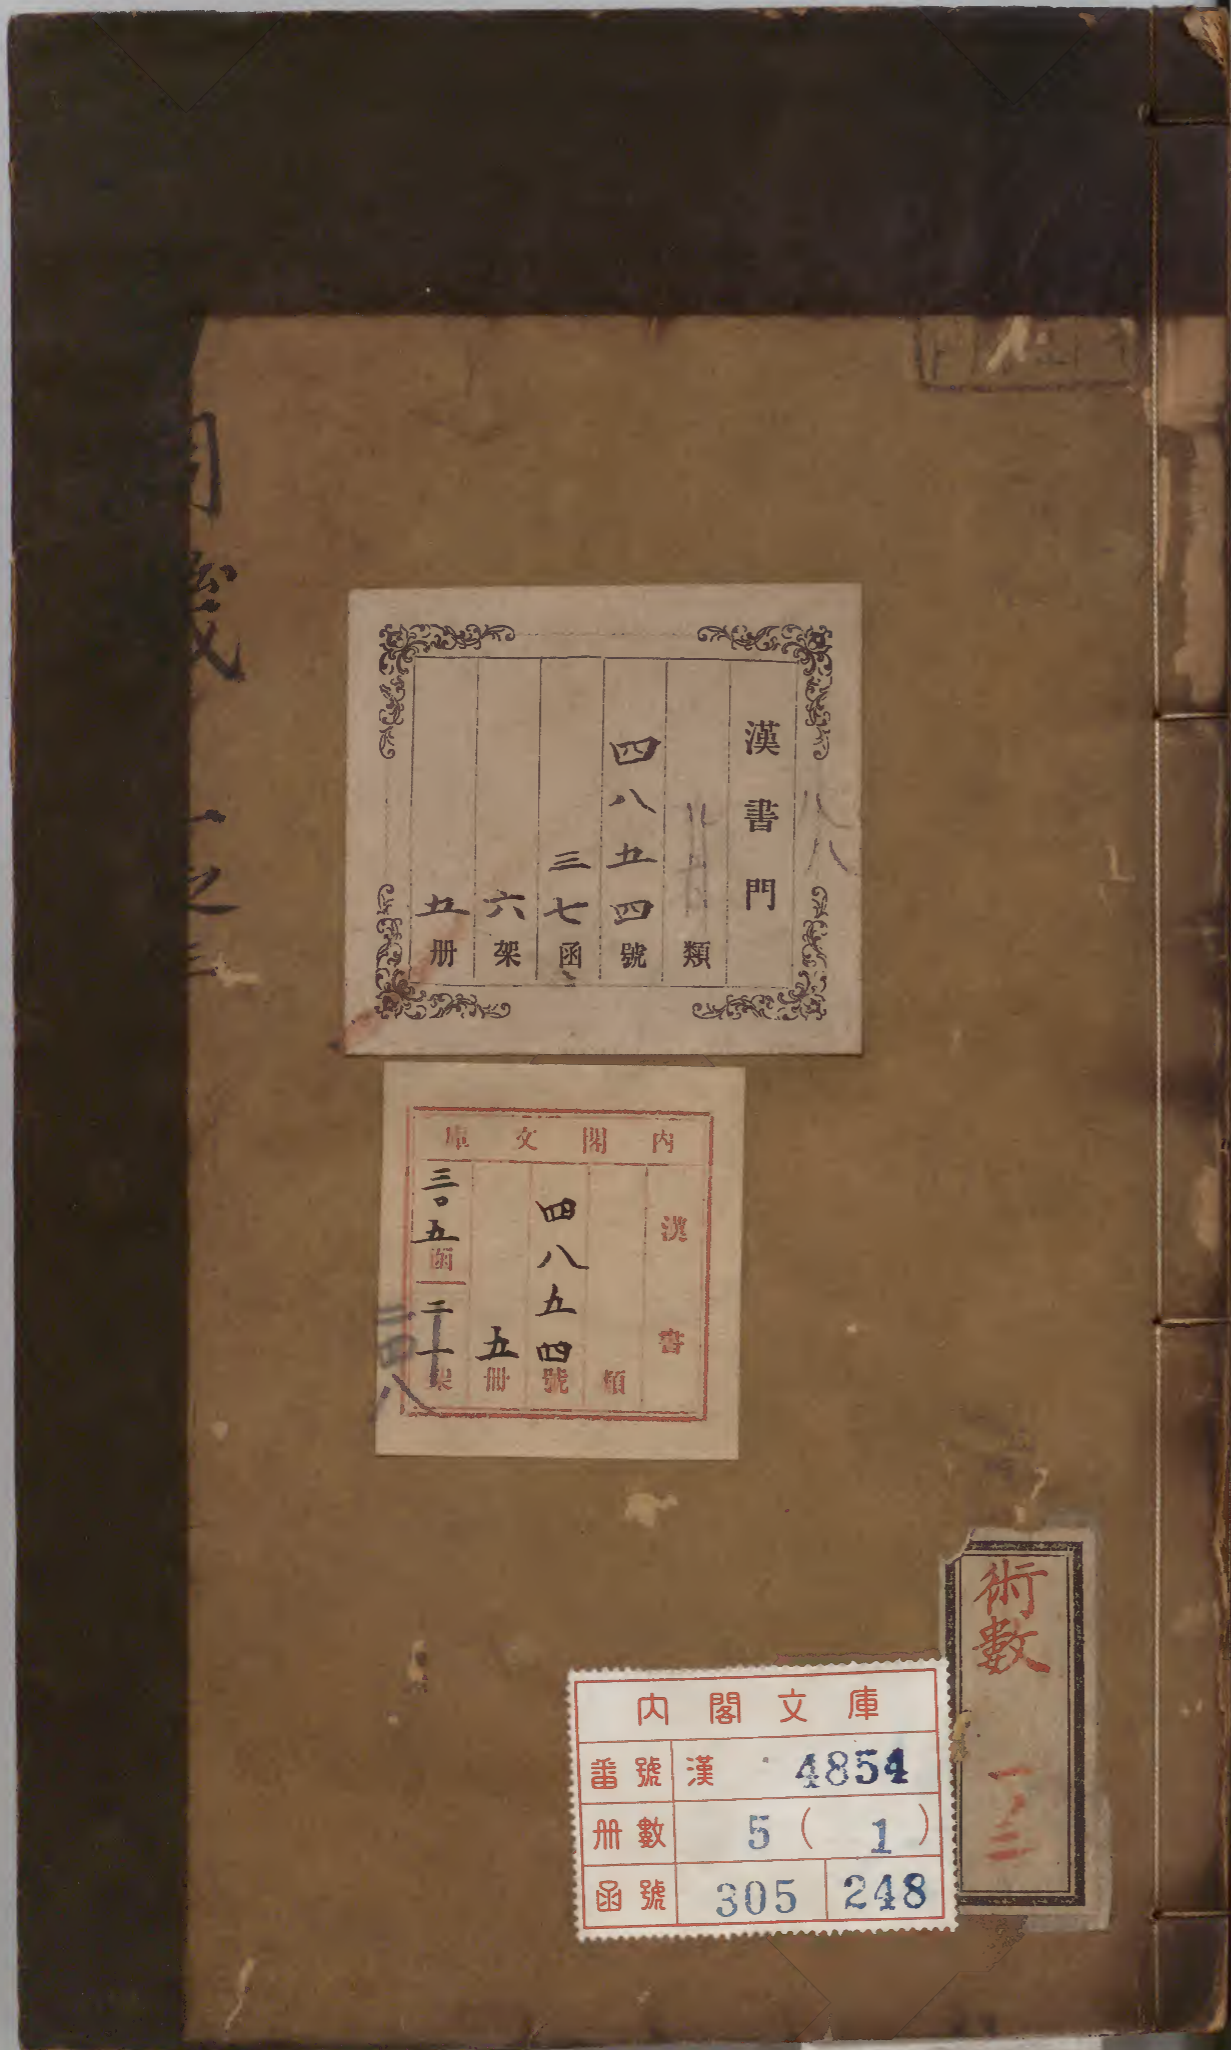 漢書門
類
四八五四號
三七函
六架
五册
八八
内閣文庫
漢書
類
四八五四號
五冊
三〇五函
二一架
二四八
術數
一ノ三
内閣文庫
番號 漢 4854
冊數 5 ( 1 )
函號 305 248